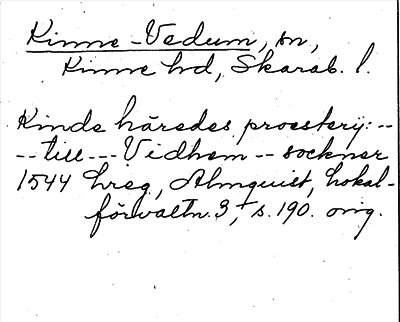 Kinne-Vedum, sn,
Kinne hd, Skarab. l.
Kinde häredes proestery: --
-- till --- Vidhem -- sockner
1544 hreg, Almquist, Lokal-
förvaltn. 3, s. 190. orig.